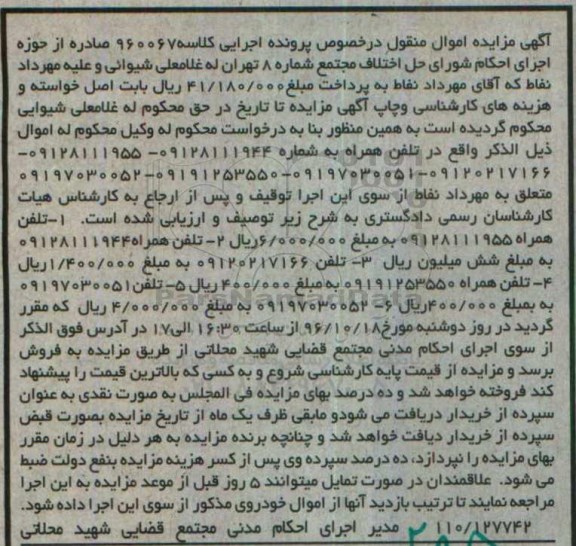 آگهی مزایده اموال منقول درخصوص پرونده اجرایی کلاسه۹۶۰۰۶۷ صادره از حوزه
اجرای احکام شورای حل اختلاف مجتمع شماره ۸ تهران له غلامعلی شیوائی و علیه مهرداد
نفاط که آقای مهرداد نفاط به پرداخت مبلغ۴۱/۱۸۰/۰۰۰ ریال بابت اصل خواسته و
هزینه های کارشناسی وچاپ آگهی مزایده تا تاریخ در حق محکوم له غلامعلی شیوایی
محکوم گردیده است به همین منظور بنا به درخواست محکوم له وکیل محکوم له اموال
ذیل الذکر واقع در تلفن همراه به شماره ۰۹۱۲۸۱۱۱۹۴۴- ۰۹۱۲۸۱۱۱۹۵۵-
۰۹۱۲۰۲۱۷۱۶۶-۰۹۱۹۷۰۳۰۰۵۱-۰۹۱۹۱۲۵۳۵۵۰-۰۹۱۹۷۰۳۰۰۵۲
متعلق به مهرداد نفاط از سوی این اجرا توقیف و پس از ارجاع به کارشناس هیات
کارشناسان رسمی دادگستری به شرح زیر توصیف و ارزیابی شده است. ۱-تلفن
همراه ۰۹۱۲۸۱۱۱۹۵۵ به مبلغ ۶/۰۰۰/۰۰۰ریال ۲- تلفن همراه۰۹۱۲۸۱۱۱۹۴۴
به مبلغ شش میلیون ریال ۳- تلفن ۰۹۱۲۰۲۱۷۱۶۶ به مبلغ ۱/۴۰۰/۰۰۰ریال
۴- تلفن همراه ۰۹۱۹۱۲۵۳۵۵۰ به مبلغ ۴۰۰/۰۰۰ ریال ۵- تلفن۰۹۱۹۷۰۳۰۰۵۱
به بمبلغ ۴۰۰/۰۰۰ریال ۶- ۰۹۱۹۷۰۳۰۰۵۲ به مبلغ ۴/۰۰۰/۰۰۰ ریال که مقرر
گردید در روز دوشنبه مورخ۹۶/۱۰/۱۸ از ساعت ۱۶:۳۰ الی۱۷ در آدرس فوق الذکر
از سوی اجرای احکام مدنی مجتمع قضایی شهید محلاتی از طریق مزایده به فروش
برسد و مزایده از قیمت پایه کارشناسی شروع و به کسی که بالاترین قیمت را پیشنهاد
کند فروخته خواهد شد و ده درصد بهای مزایده فی المجلس به صورت نقدی به عنوان
سپرده از خریدار دریافت می شودو مابقی ظرف یک ماه از تاریخ مزایده بصورت قبض
سپرده از خریدار دیافت خواهد شد و چنانچه برنده مزایده به هر دلیل در زمان مقرر
بهای مزایده را نپردازد، ده درصد سپرده وی پس از کسر هزینه مزایده بنفع دولت ضبط
می شود. علاقمندان در صورت تمایل میتوانند ۵ روز قبل از موعد مزایده به این اجرا
مراجعه نمایند تا ترتیب بازدید آنها از اموال خودروی مذکور از سوی این اجرا داده شود.
۱۱۰/۱۲۷۷۴۲ مدیر اجرای احکام مدنی مجتمع قضایی شهید محلاتی